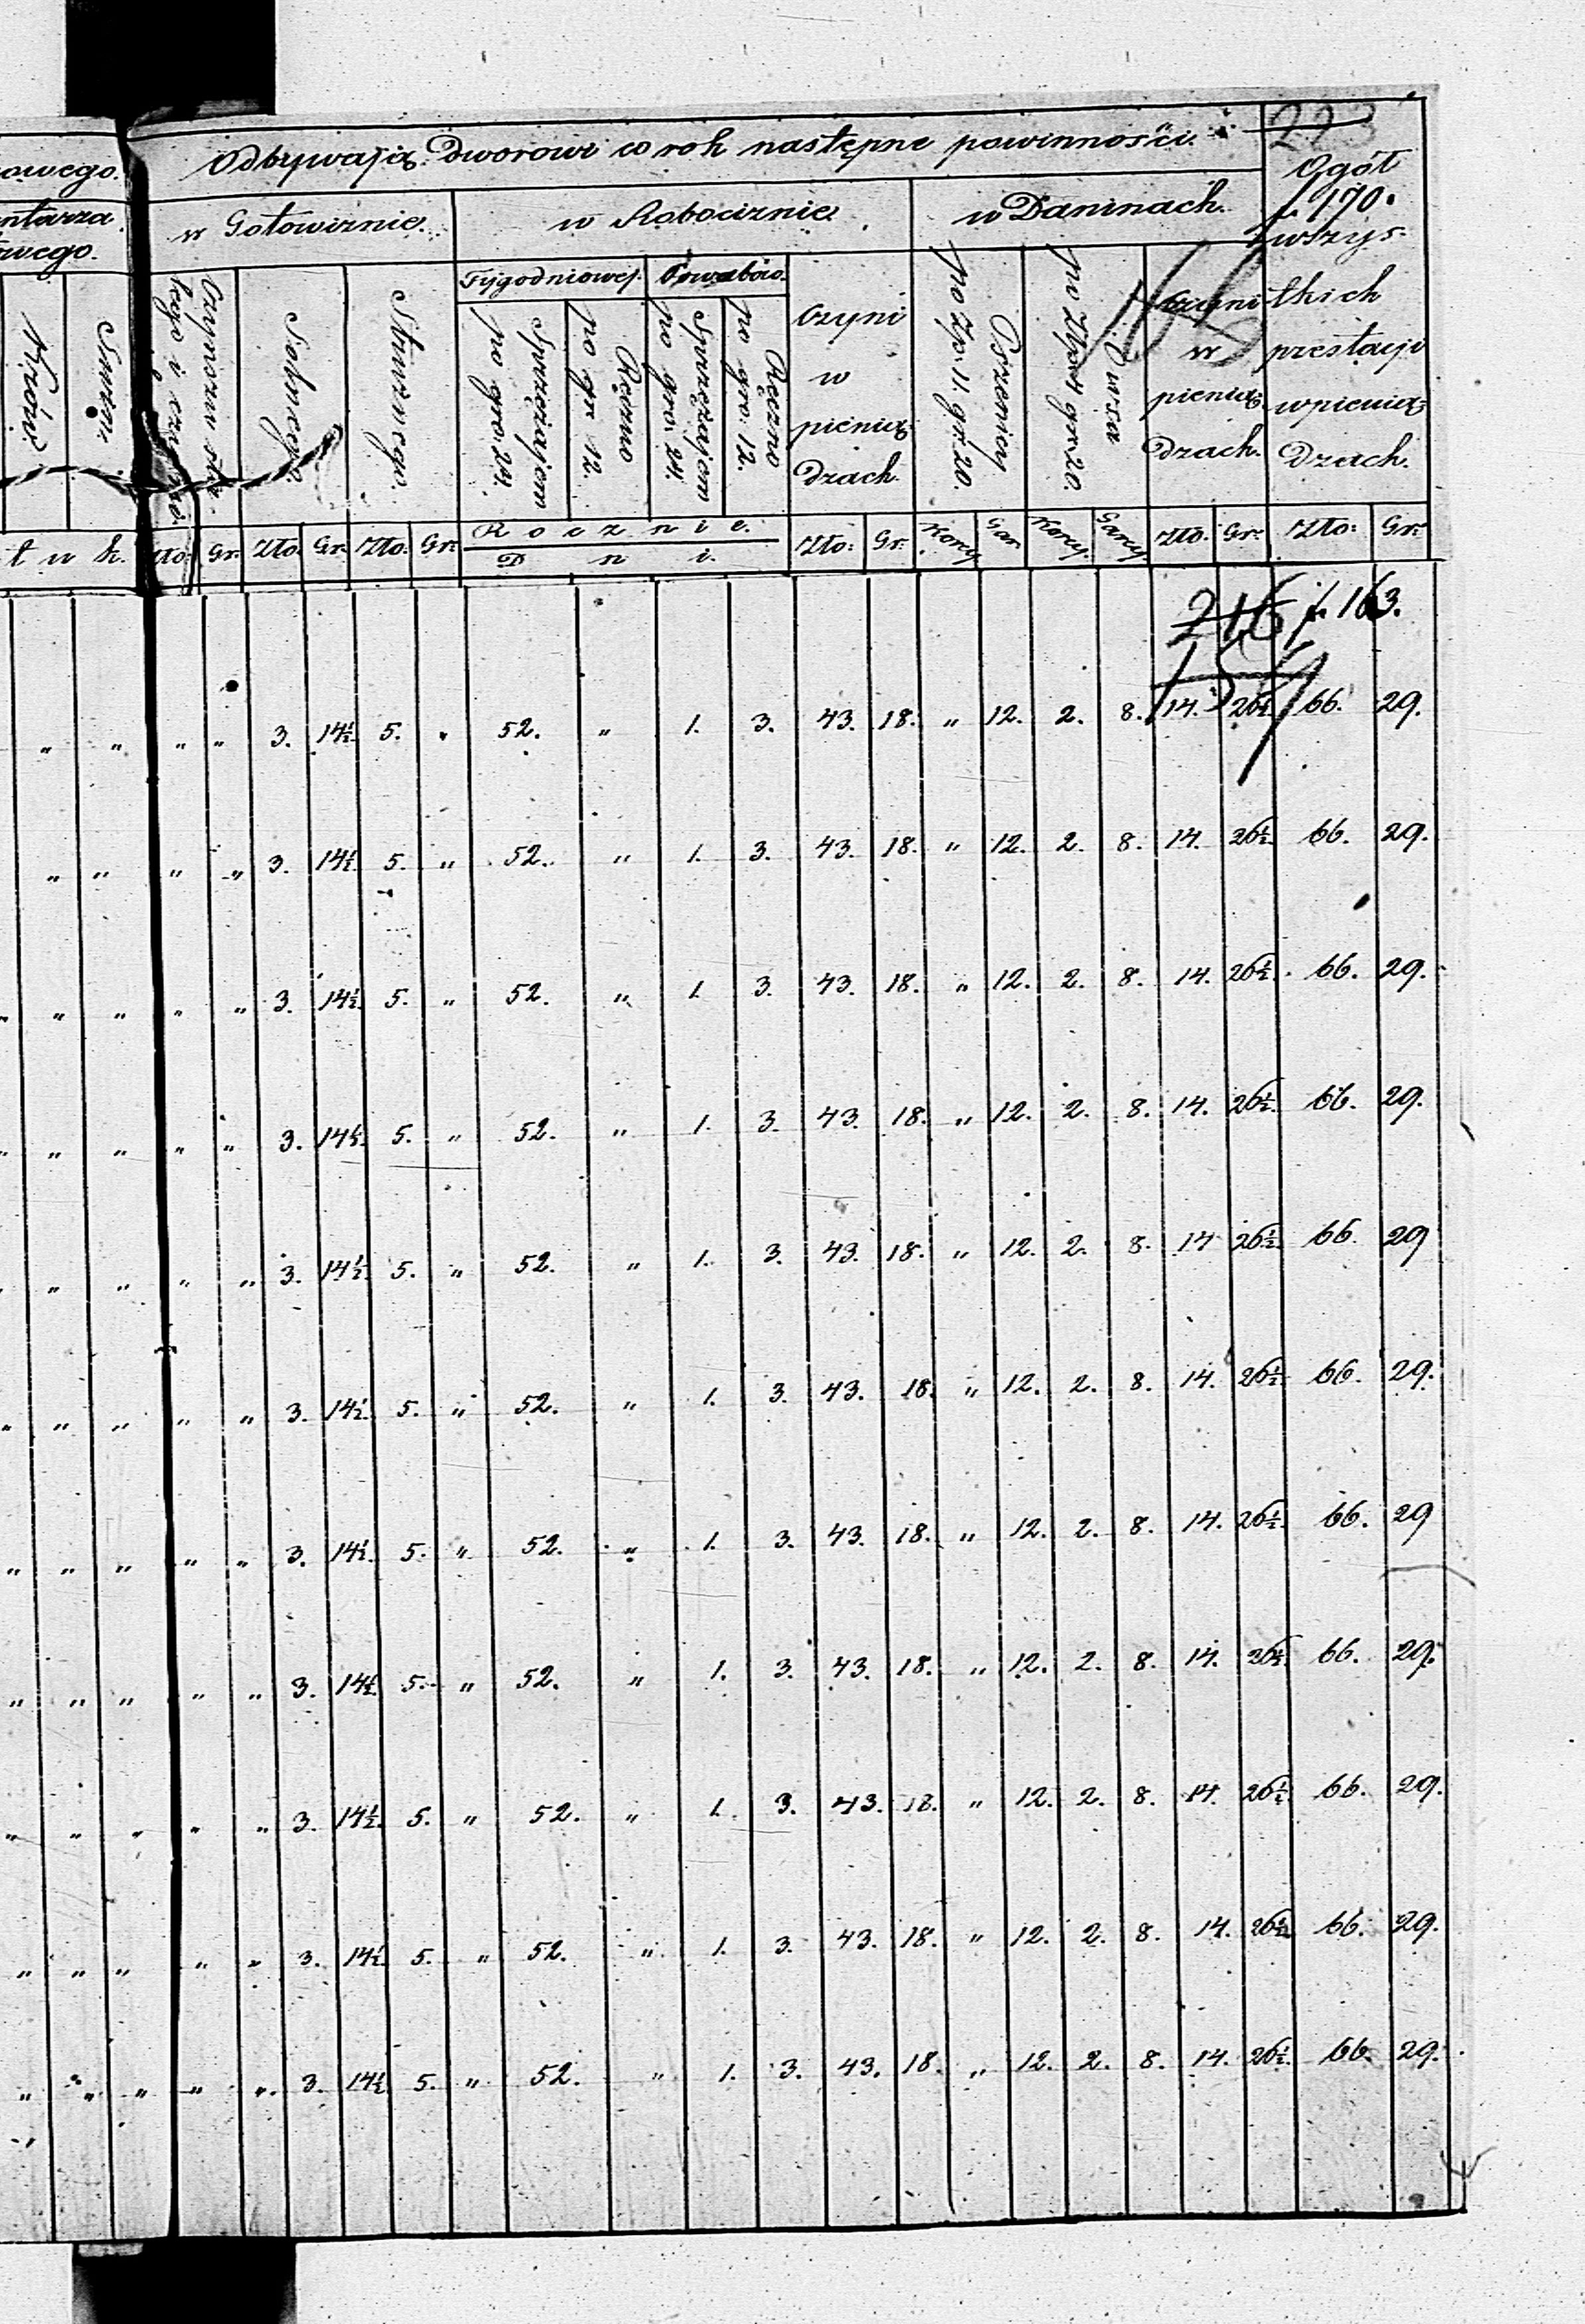 Odbywają Dworowi co rok następne powinności.
223
owego.
ntarza
owego.
w Gotowiznie.
w Robociznie
w Daninach.
Ogół
f. 170.
wszys-
tkich
prestacji
w pienią-
dzach.
Krów.
Czynszu
Solnego.
Stróżnego.
Tygodniowej.
po gro. 24. Sprzężajem
po gr 12. Ręczno
po gro. 24. Sprzężajem
po gro. 12. Ręczno
Czyni
w
pienią-
dzach.
po Zp. 11. gr. 20. Pszenicy
gr 20. Owsa
Czyni
w
pienią-
dzach.
t u k. Zło: Gr: Zło. Gr: Zło: Gr: Rocznie. Zło: Gr: Korcy Gar. Korcy Garncy Zło. Gr: Zło: Gr:
D n i.
216 f. 163.
" " " " 3. 14½ 5. " 52. " 1. 3. 43. 18. " 12. 2. 8. 14. 26½ 66. 29.
" " " " 3. 14½ 5. " 52. " 1. 3. 43. 18. " 12. 2. 8. 14. 26½. 66. 29.
" " " " " 3. 14½ 5. " 52. " 1. 3. 43. 18. " 12. 2. 8. 14. 26½. 66. 29.
" " " " " 3. 14½. 5. " 52. " 1. 3. 43. 18. " 12. 2. 8. 14. 26½. 66. 29.
" " " " " 3. 14½. 5. " 52. " 1. 3. 43. 18. " 12. 2. 8. 14 26½. 66. 29
" " " " " 3. 14½. 5. " 52. " 1. 3. 43. 18. " 12. 2. 8. 14. 26½. 66. 29.
" " " " " 3. 14½. 5. " 52. " 1. 3. 43. 18. " 12. 2. 8. 14. 26½. 66. 29
" " " " " 3. 14½. 5. " 52. " 1. 3. 43. 18. " 12. 2. 8. 14. 26½ 66. 29.
" " " " " 3. 14½. 5. " 52. " 1. 3. 43. 18. " 12. 2. 8. 14. 26½. 66. 29.
" " " " " 3. 14½. 5. " 52. " 1. 3. 43. 18. " 12. 2. 8. 14. 26½ 66. 29.
" " " " " 3. 14½ 5. " 52. " 1. 3. 43. 18. " 12. 2. 8. 14. 26½. 66. 29.